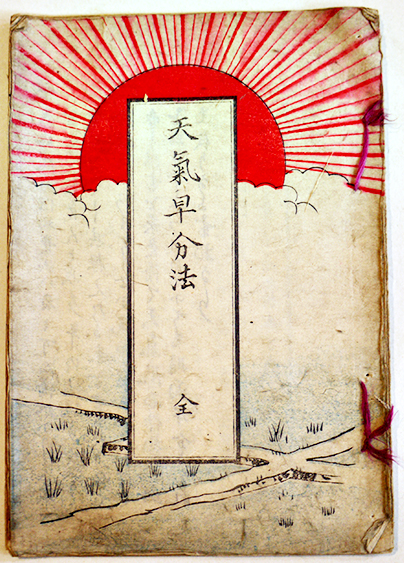 天氣早分法
全